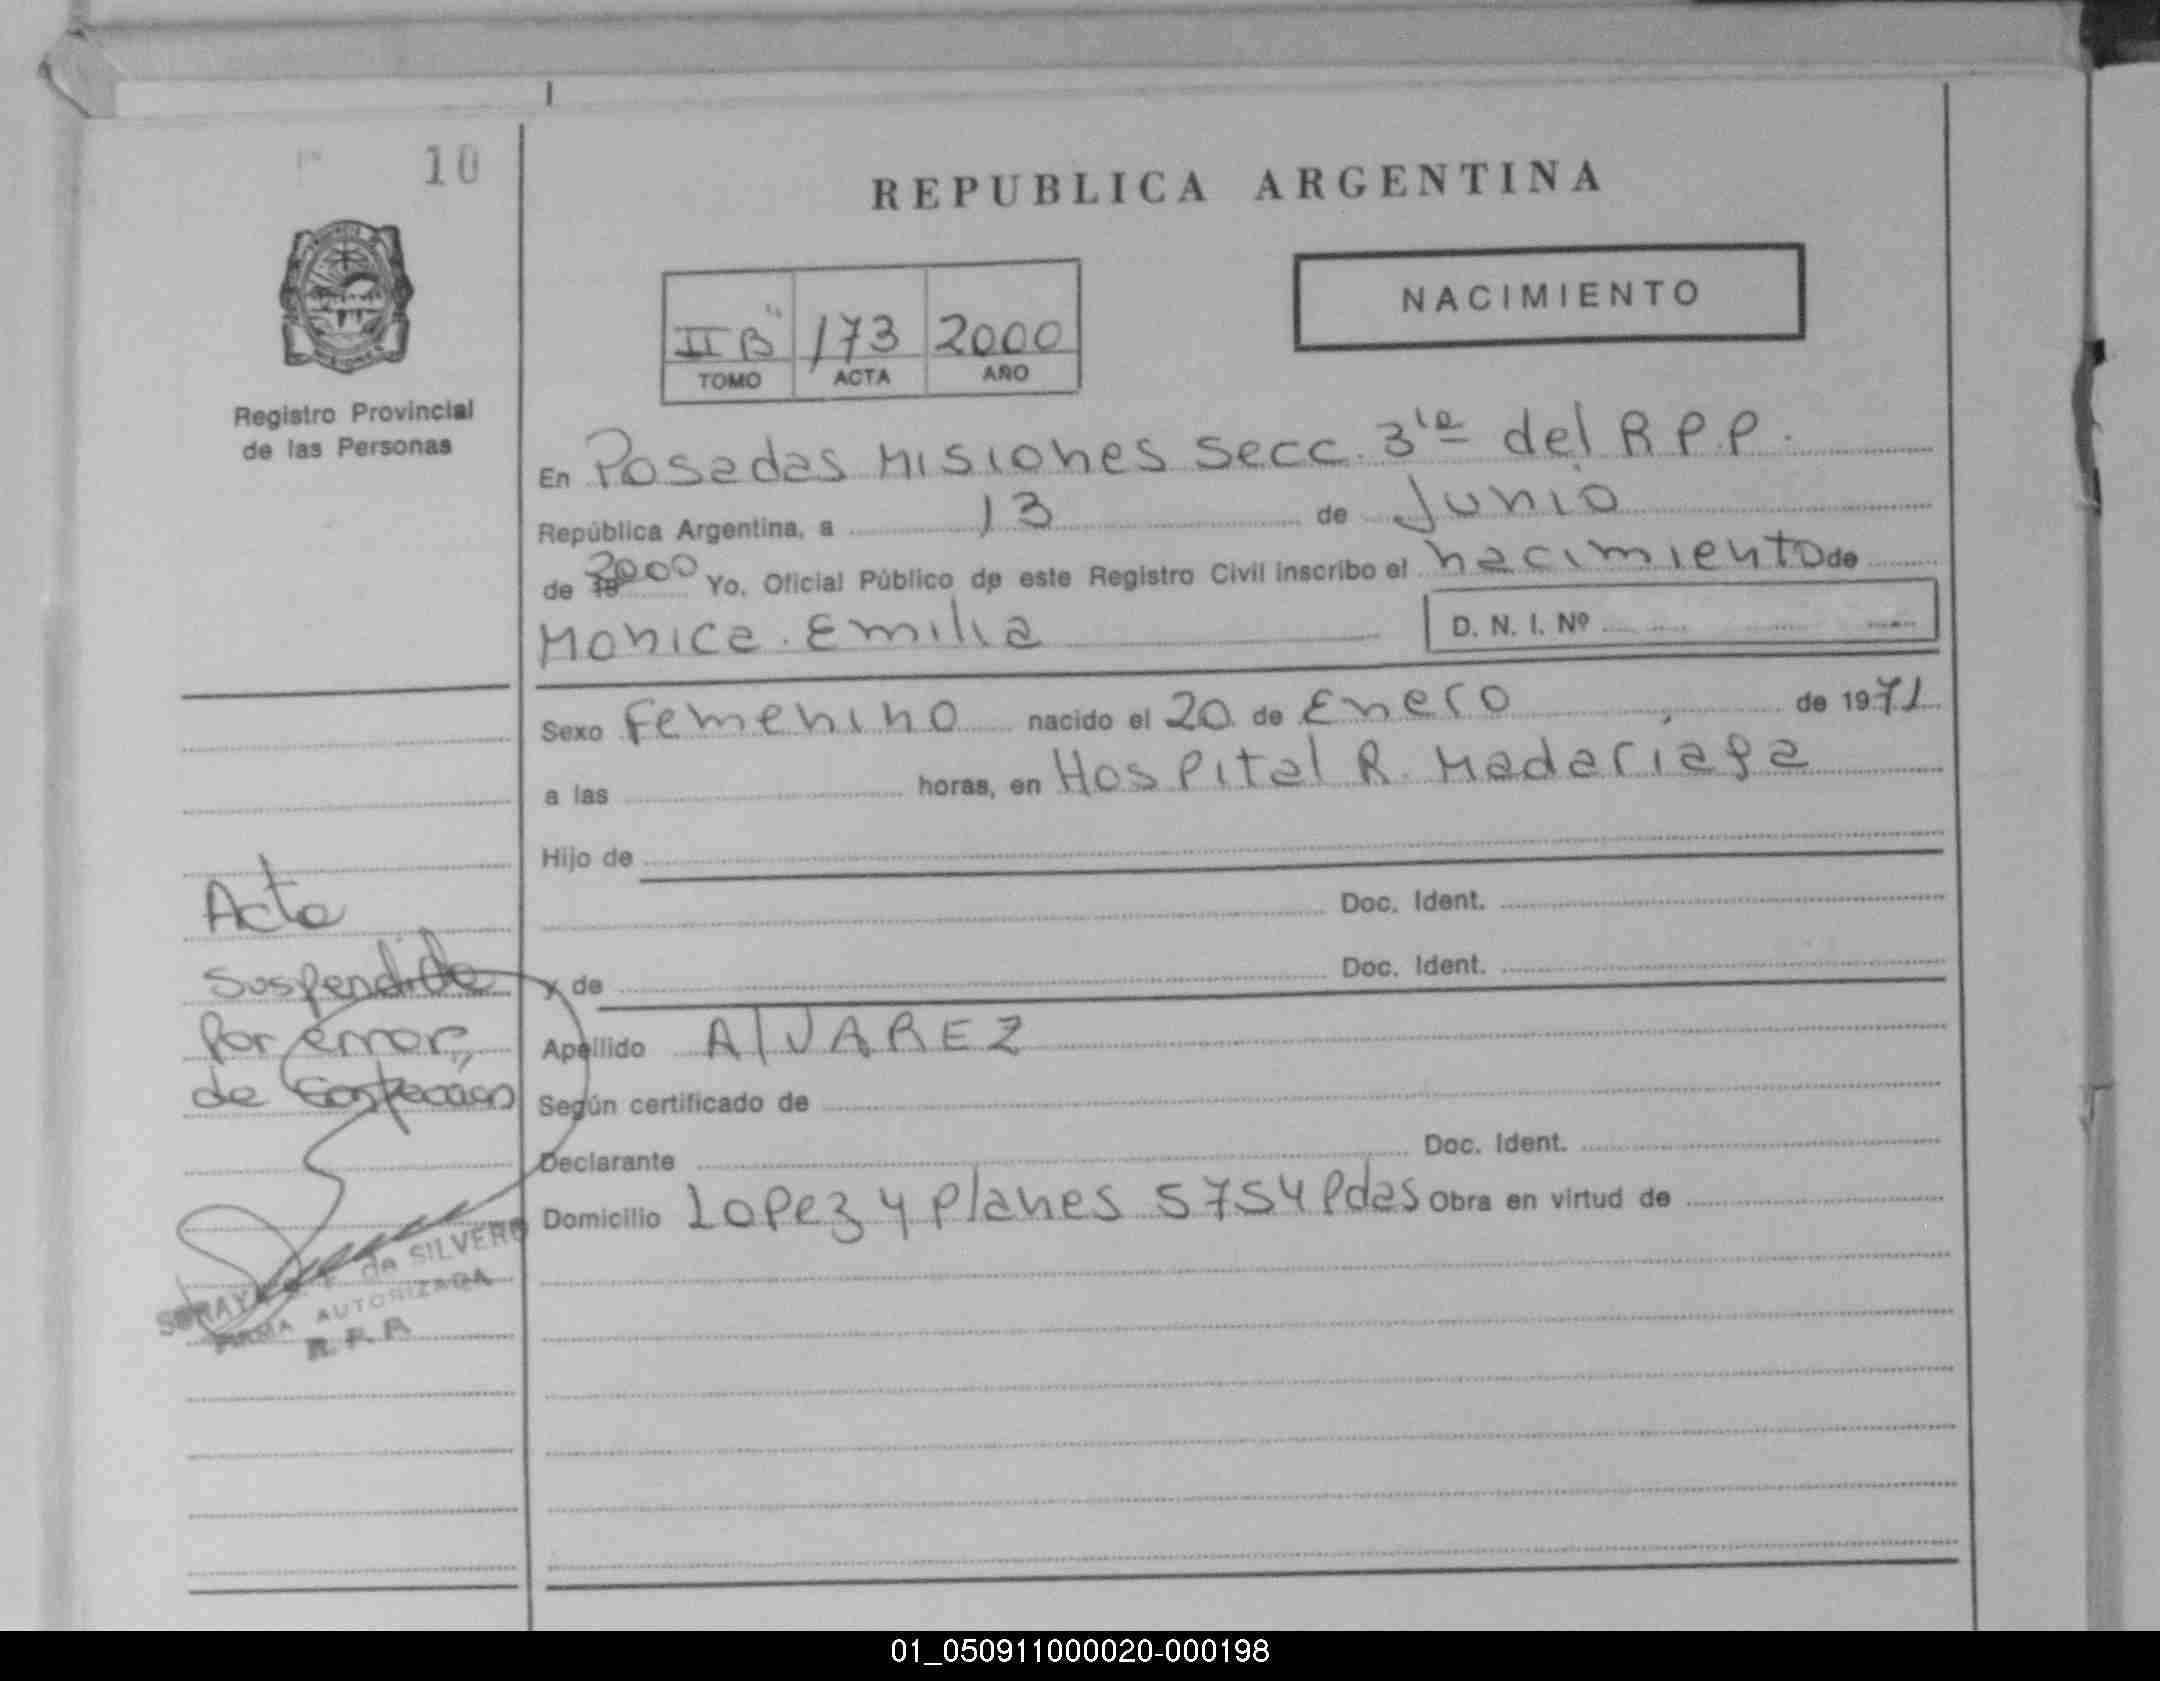 10
REPUBLICA ARGENTINA
NACIMIENTO
II B" 173 2000
TOMO ACTA AÑO
Registro Provincial
de las Personas
En Posadas Misiones Secc. 3ra del R.P.P.
República Argentina, a 13 de Junio
de 2000 Yo, Oficial Público de este Registro Civil inscribo el nacimiento de
Monica Emilia D. N. I. Nº
Sexo Femenino nacido el 20 de Enero de 1971
a las horas, en Hospital R. Madariaga
Hijo de
Doc. Ident.
y de Doc. Ident.
Apellido AlVAREZ
Según certificado de
Declarante Doc. Ident.
Domicilio Lopez y Planes 5754 Pdas Obra en virtud de
Acta
Suspendida
por error
de
de SILVERO
FIRMA AUTORIZADA
R. P. P.
01_050911000020-000198